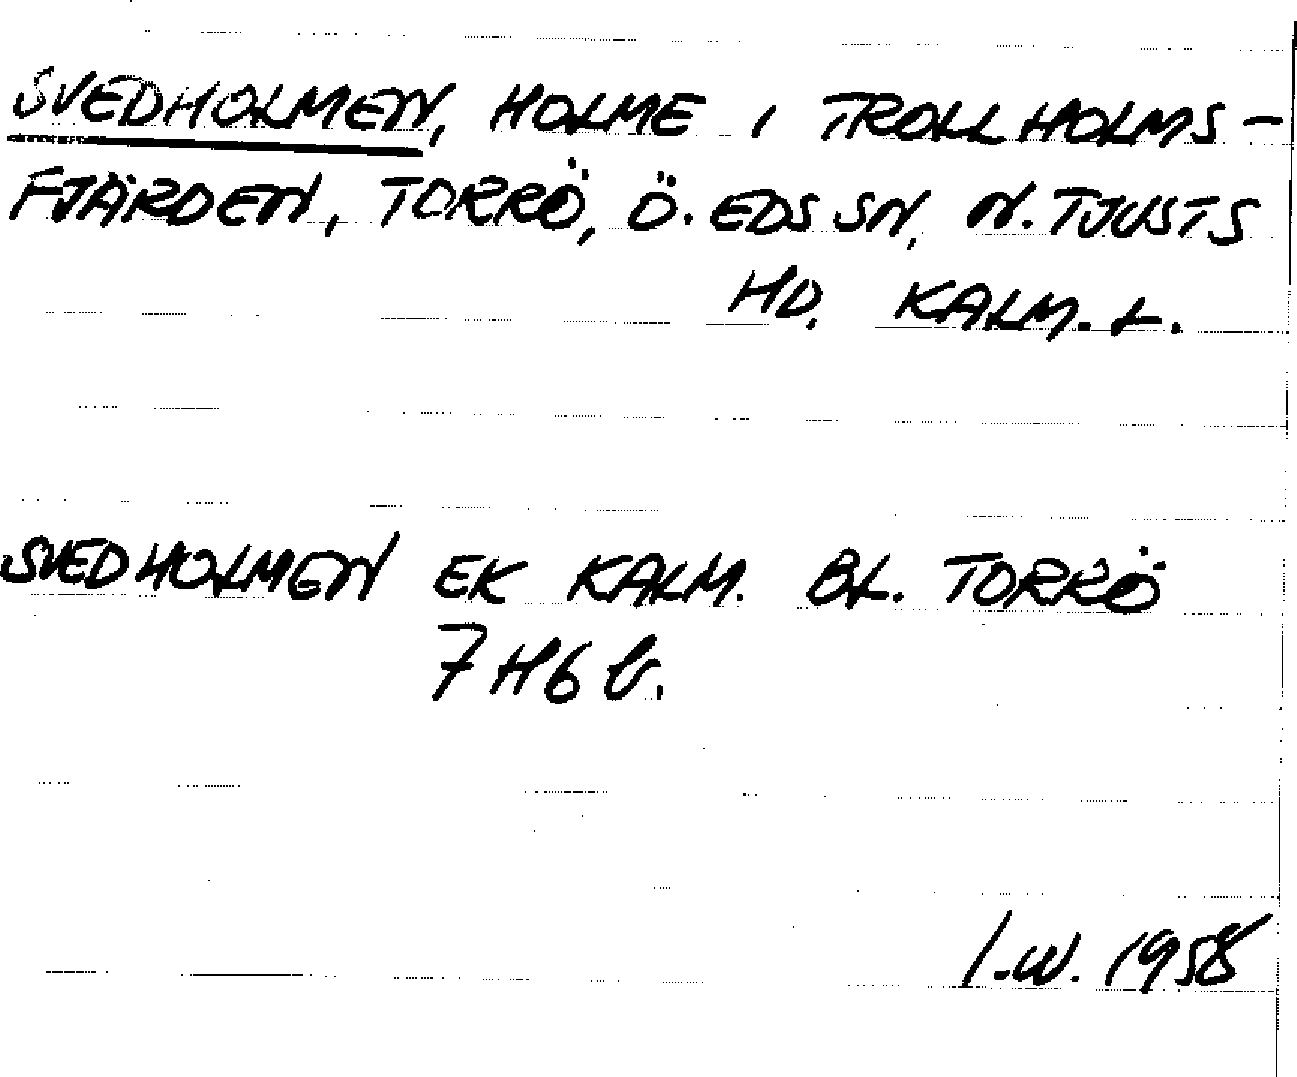 SVEDHOLMEN, HOLME I TROLLHOLMS-
FJÄRDEN, TORRÖ, Ö. EDS SN, N. TJUSTS
HD, KALM. L.
SVEDHOLMEN EK KALM. BL. TORRÖ
7H6b.
I.W. 1958